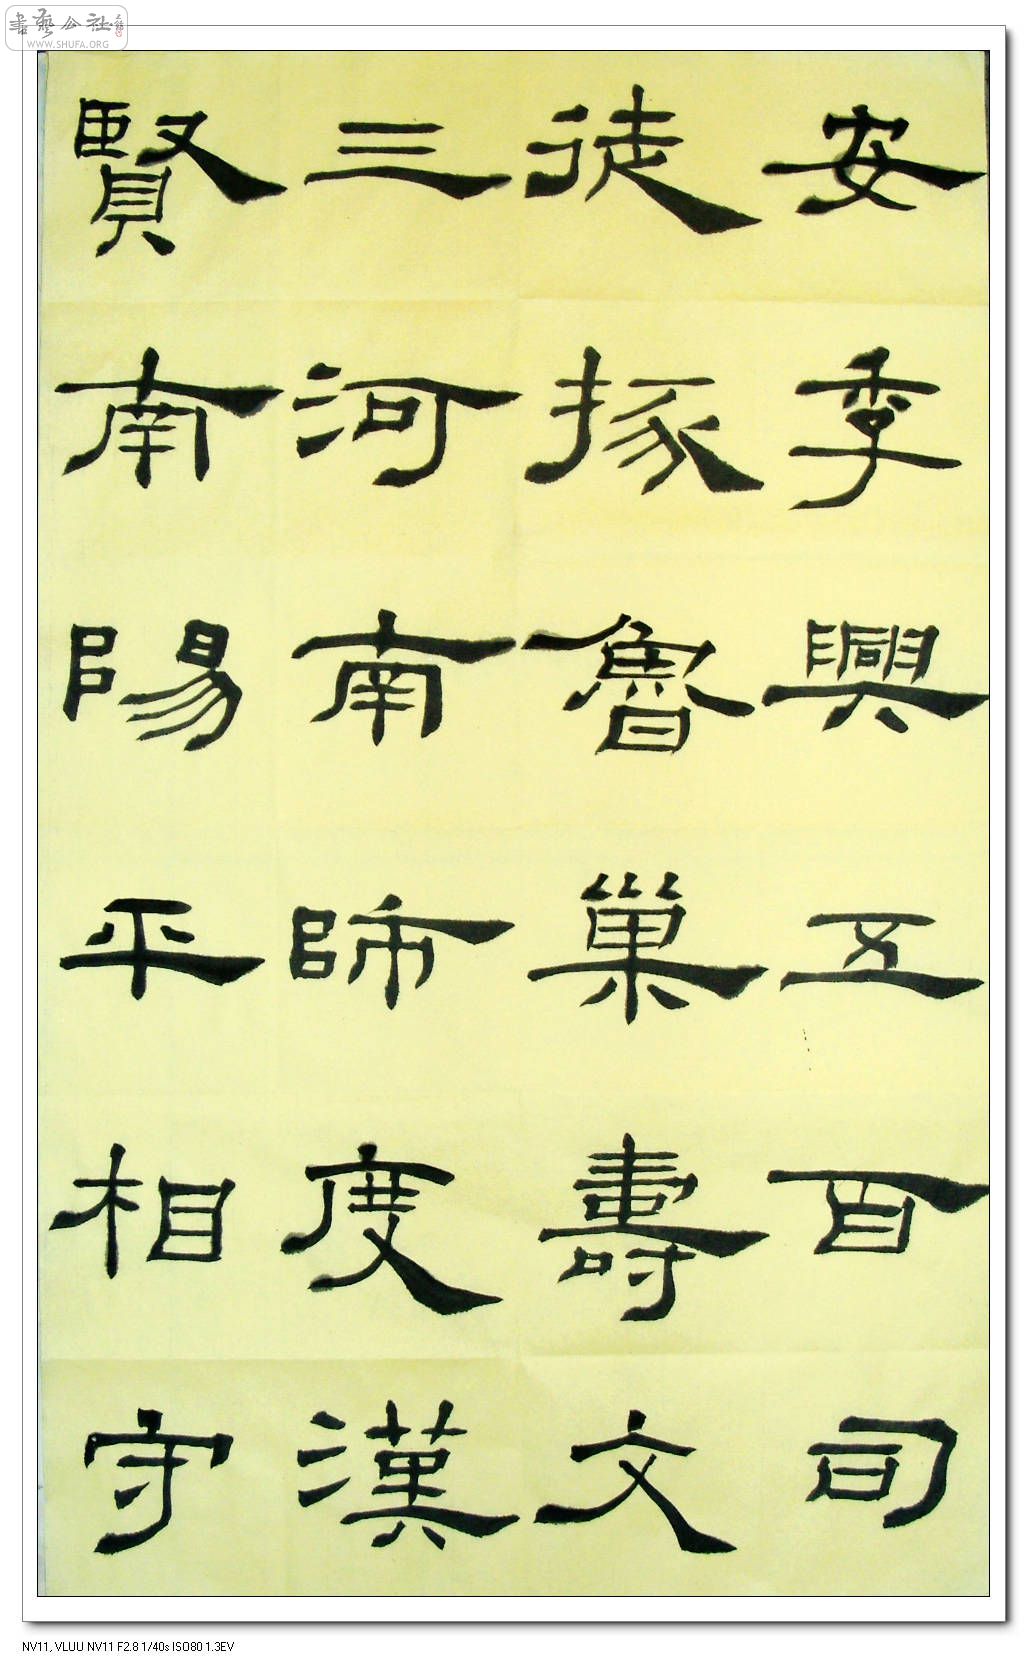 書藝公社
WWW.SHUFA.ORG
安季興五百司
徒掾魯巢壽文
三河南師度漢
賢南陽平相守
NV11, VLUU NV11 F2.8 1/40s ISO80 1.3EV